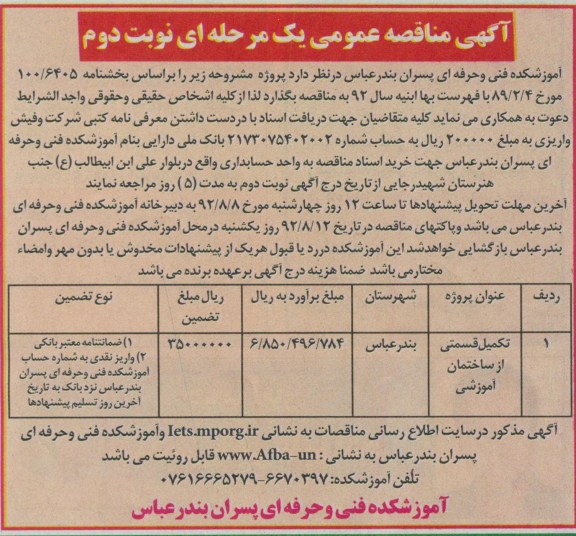 آگهی مناقصه عمومی یک مرحله ای نوبت دوم
آموزشکده فنی وحرفه ای پسران بندرعباس درنظر دارد پروژه مشروحه زیر را براساس بخشنامه ۱۰۰/۶۴۰۵
مورخ ۸۹/۲/۴ با فهرست بها ابنیه سال ۹۲ به مناقصه بگذارد لذا ازکلیه اشخاص حقیقی وحقوقی واجد الشرایط
دعوت به همکاری می نماید کلیه متقاضیان جهت دریافت اسناد با دردست داشتن معرفی نامه کتبی شرکت وفیش
واریزی به مبلغ ۲۰۰۰۰۰ ریال به حساب شماره ۲۱۷۳۰۷۵۴۰۲۰۰۲ بانک ملی دارایی بنام آموزشکده فنی وحرفه
ای پسران بندرعباس جهت خرید اسناد مناقصه به واحد حسابداری واقع دربلوار علی ابن ابیطالب (ع) جنب
هنرستان شهیدرجایی ازتاریخ درج آگهی نوبت دوم به مدت (۵) روز مراجعه نمایند
آخرین مهلت تحویل پیشنهادها تا ساعت ۱۲ روز چهارشنبه مورخ ۹۲/۸/۸ به دبیرخانه آموزشکده فنی وحرفه ای
بندرعباس می باشد وپاکتهای مناقصه درتاریخ ۹۲/۸/۱۲ روز یکشنبه درمحل آموزشکده فنی وحرفه ای پسران
بندرعباس بازگشایی خواهدشد این آموزشکده دررد یا قبول هریک از پیشنهادات مخدوش یا بدون مهر وامضاء
مختارمی باشد ضمنا هزینه درج آگهی برعهده برنده می باشد
ردیف عنوان پروژه شهرستان مبلغ برآورد به ریال ریال مبلغ تضمین نوع تضمین
۱ تکمیل قسمتی از ساختمان آموزشی بندرعباس ۶/۸۵۰/۴۹۶/۷۸۴ ۳۵۰۰۰۰۰۰ ۱) ضمانتنامه معتبر بانکی
۲) واریز نقدی به شماره حساب
آموزشکده فنی وحرفه ای پسران
بندرعباس نزد بانک به تاریخ
آخرین روز تسلیم پیشنهادها
آگهی مذکور درسایت اطلاع رسانی مناقصات به نشانی Iets.mporg.ir وآموزشکده فنی وحرفه ای
پسران بندرعباس به نشانی : www.Afba-un قابل روئیت می باشد
تلفن آموزشکده: ۶۶۷۰۳۹۷-۰۷۶۱۶۶۶۵۲۷۹
آموزشکده فنی وحرفه ای پسران بندرعباس